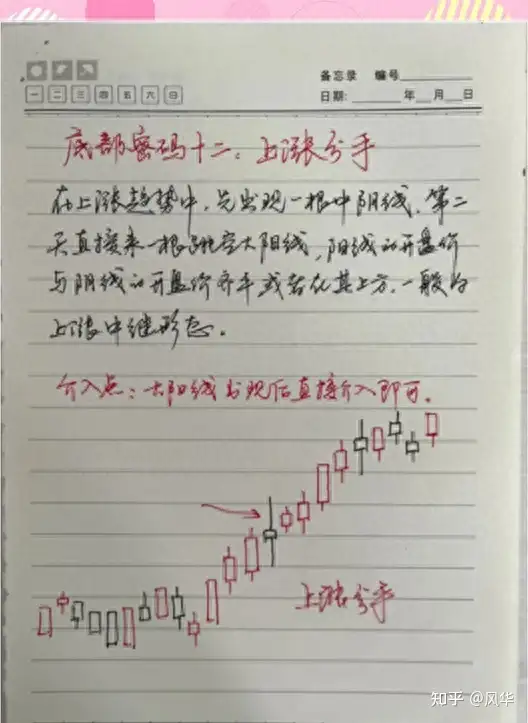 备忘录 编号
一 二 三 四 五 六 日
日期: 年 月 日
底部密码十二、上涨分手
在上涨趋势中,先出现一根中阴线,第二
天直接来一根跳空大阳线,阳线的开盘价
与阴线的开盘价齐平或者在其上方,一般为
上涨中继形态。
介入点:大阳线出现后直接介入即可。
上涨分手
知乎 @风华